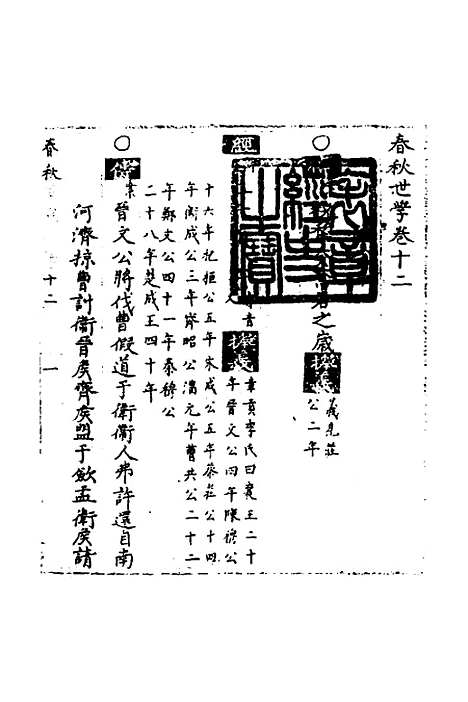 春秋世學卷十二
之歲
義見莊
公二年
經
韋貢李氏曰襄王二十
年晉文公四年陳穆公
十六年杞桓公五年宋成公五年蔡莊公十四
年衛成公三年齊昭公潘元年曹共公二十二
年鄭文公四十一年秦穆公
二十八年楚成王四十年
傳
晉文公將伐曹假道于衛衛人弗許還自南
河濟掠曹討衛晉矦齊矦盟于斂盂衛矦請
春秋
十二
一